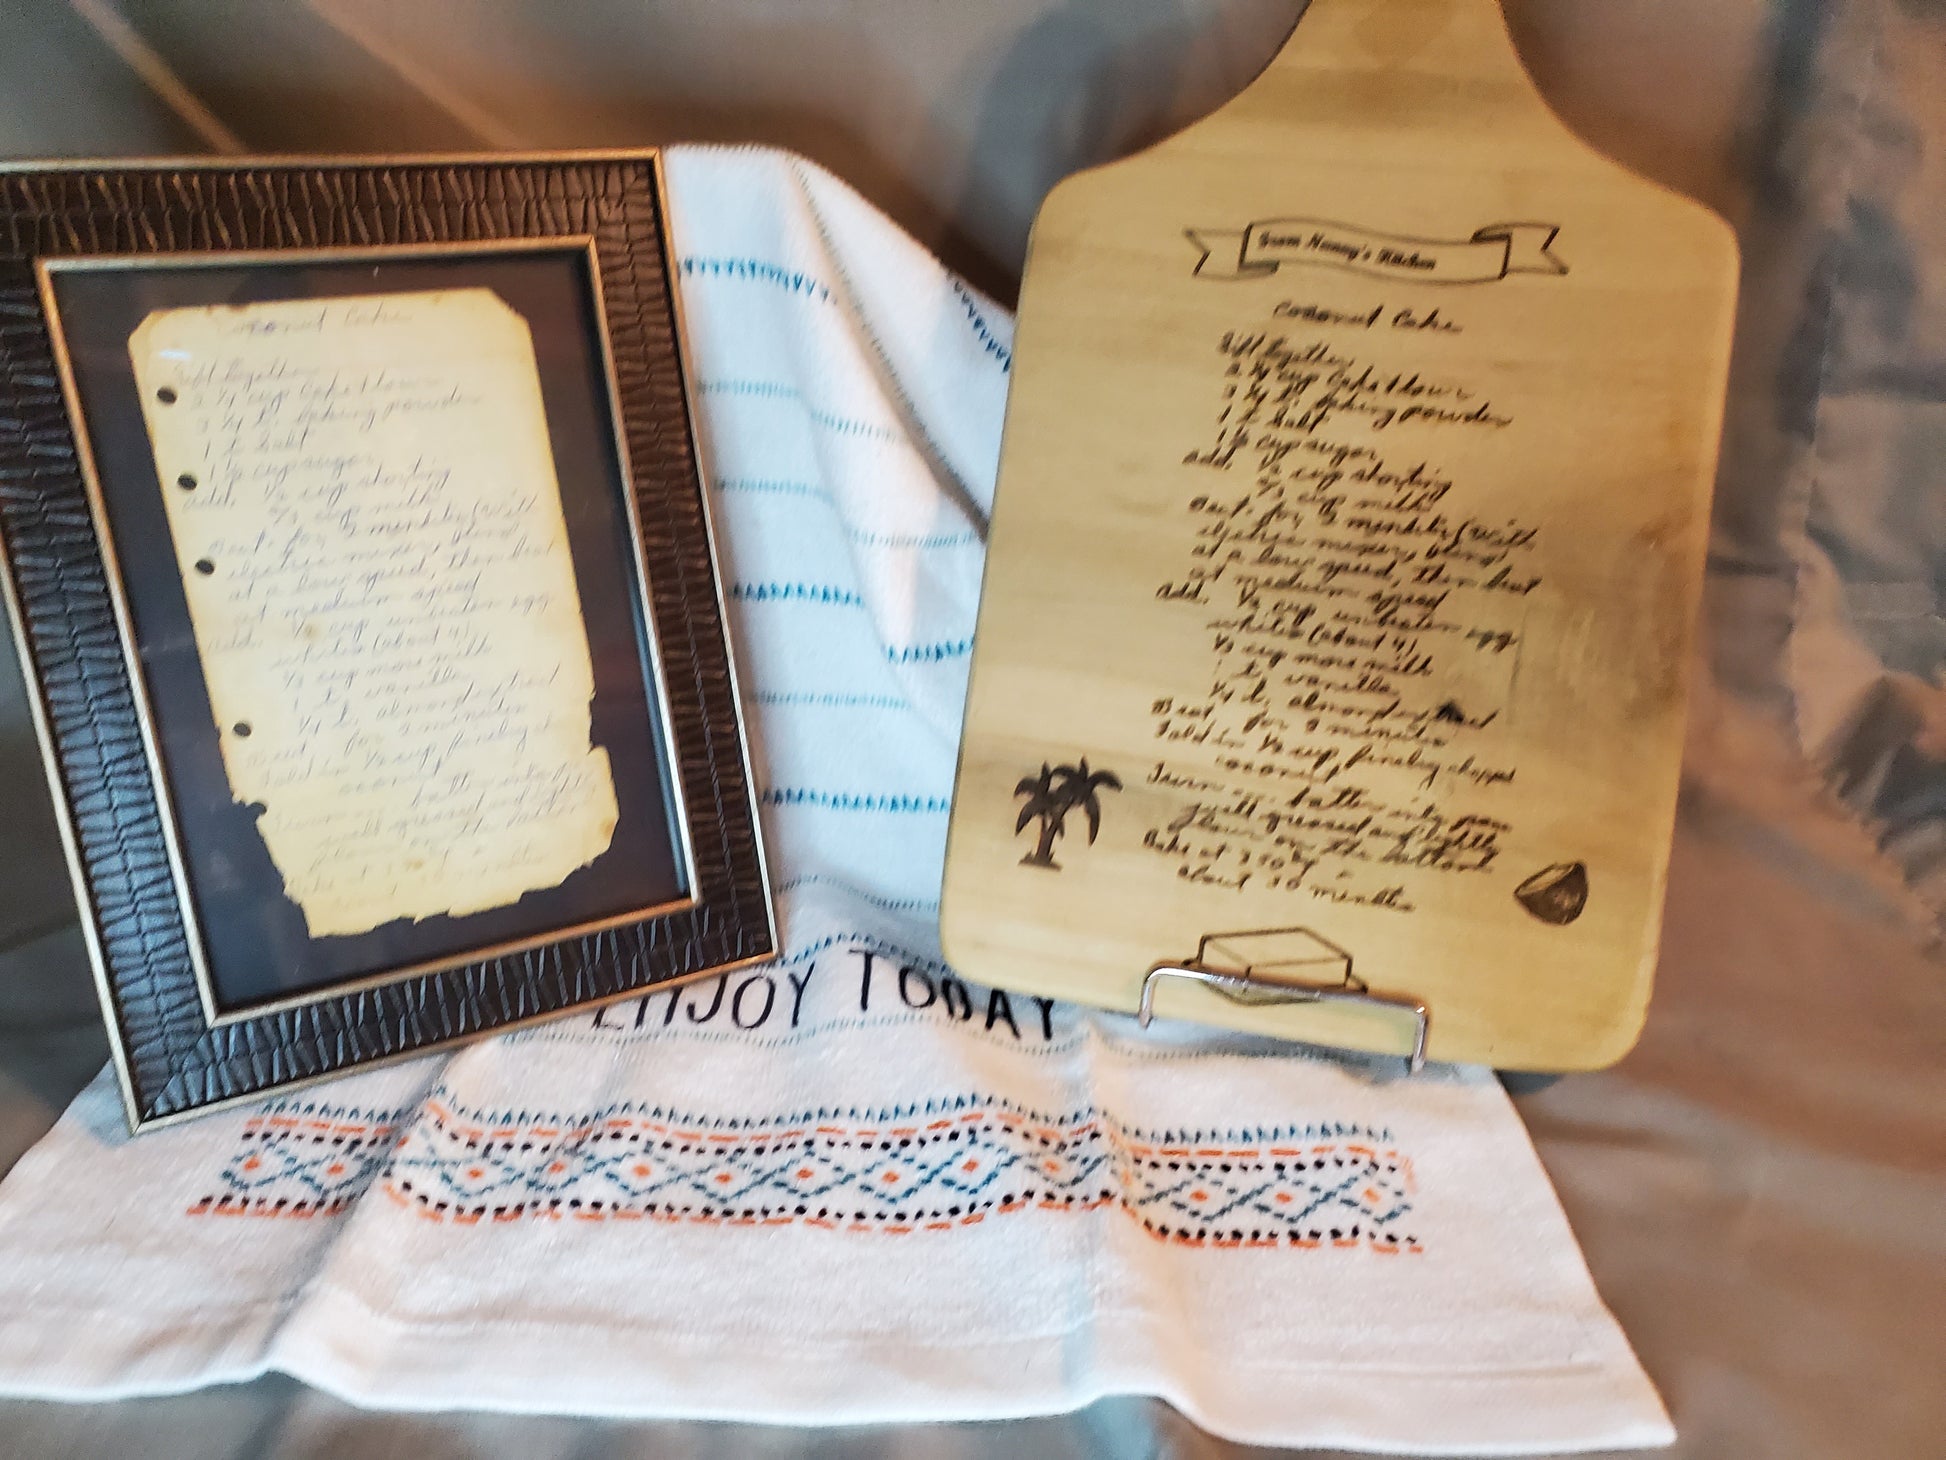 Coconut Cake
Sift together
2 1/4 cup Cake flour
3 1/4 t. baking powder
1 t salt
cup sugar
add. 1/2 cup shorting
2/3 cup milk
Beat for 2 minutes (With
electric mixer, blend
at a low speed, then beat
at medium speed
add. cup unbeaten egg
whites (about 4)
1/3 cup more milk
1 t. vanilla
1/4 t. almond extract
Beat for 2 minutes
Fold in cup finely ch
coconut,
Turn .... batter into
well greased and lightly
flour on the bottom
Bake at 350
about 30 minutes
ENJOY TODAY
Gram Nanny's Kitchen
Coconut Cake
Sift together
2 1/4 cup Cake flour
3 1/4 t. baking powder
1 t salt
cup sugar
add. 1/2 cup shorting
2/3 cup milk
Beat for 2 minutes (With
electric mixer, blend
at a low speed, then beat
at medium speed
add. cup unbeaten egg
whites (about 4)
1/3 cup more milk
1 t. vanilla
1/4 t. almond extract
Beat for 2 minutes
Fold in cup finely chopped
coconut,
Turn .... batter into pan
well greased and lightly
flour on the bottom
Bake at 350
about 30 minutes